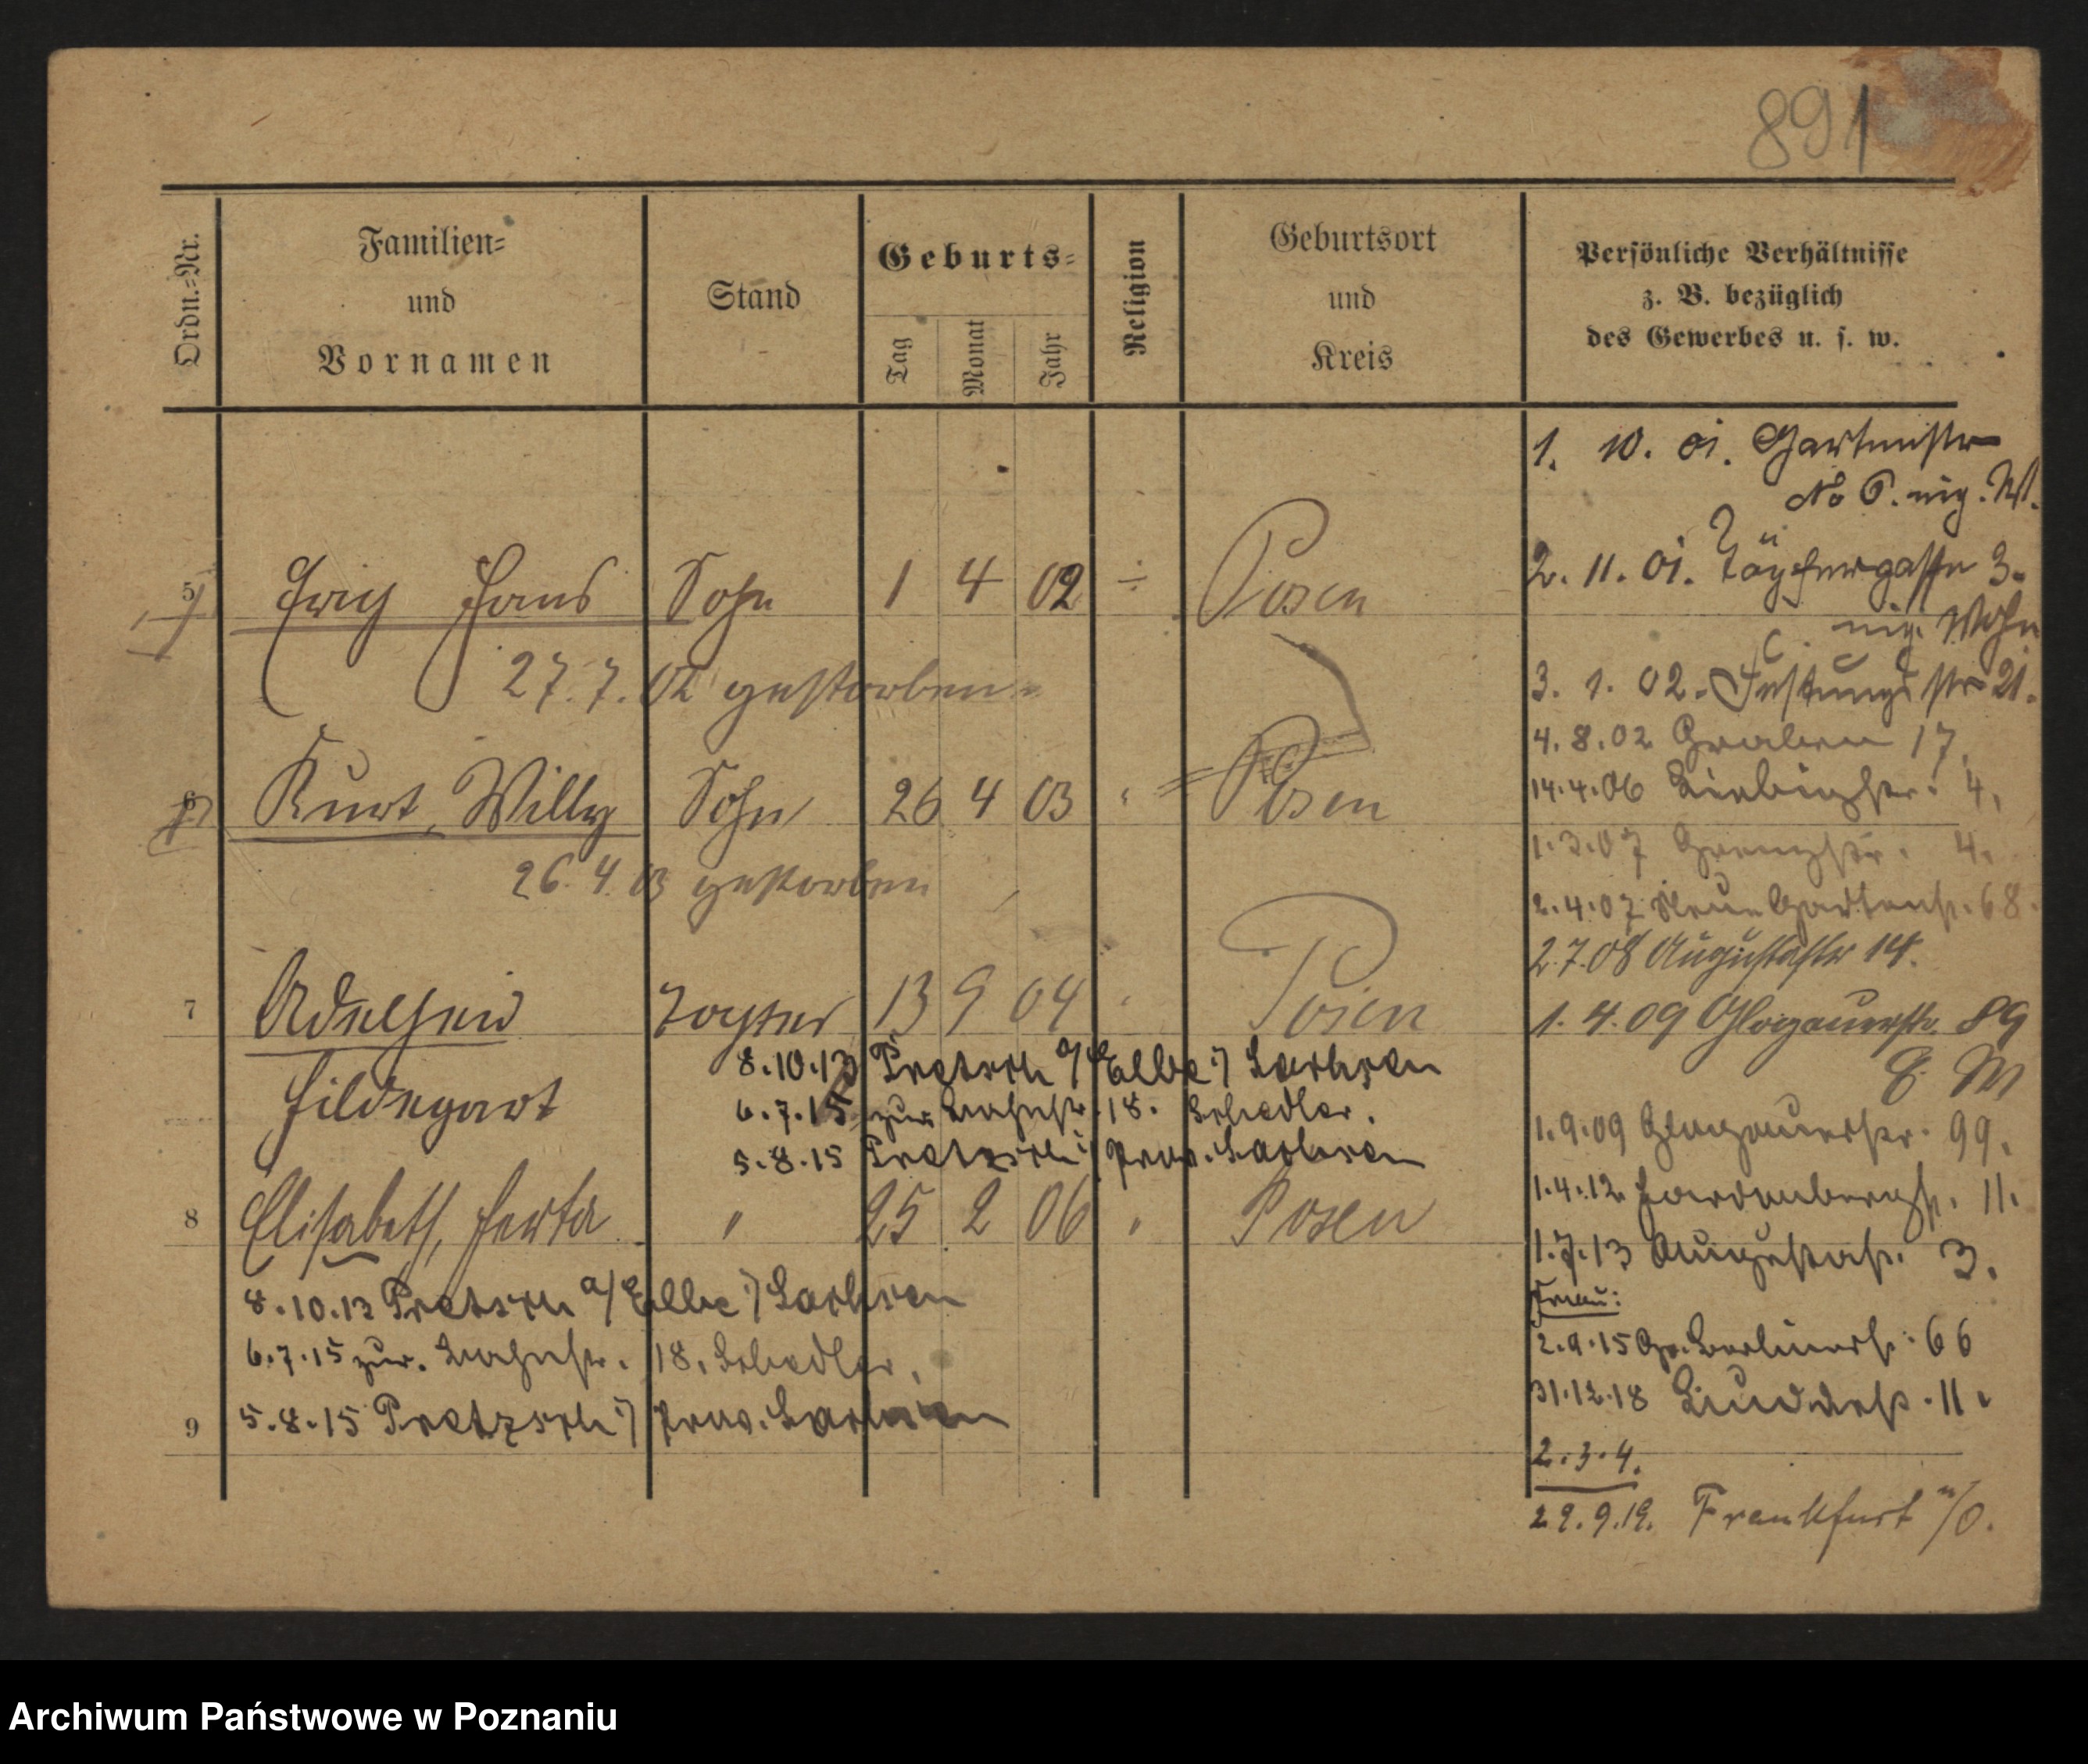 891
Ordn.-Nr.
Familien-
und
Vornamen
Stand
Geburts-
Tag
Monat
Jahr
Religion
Geburtsort
und
Kreis
Persönliche Verhältnisse
z. B. bezüglich
des Gewerbes u. s. w.
5 Erich Hans Sohn 1 4 02 Posen
27.7.02 gestorben
6 Kurt, Willy Sohn 26 4 03 " Posen
26.4.03 gestorben
7 Adelheid Tochter 13 9 04 " Posen
Hildegart
8.10.13 Pretzsch a/Elbe Sachsen
6.7.15 zur. 18. Schedler.
5.8.15 Pretzsch Prov. Sachsen
8 Elisabeth, Herta " 25 2 06 " Posen
8.10.13 Pretzsch a/Elbe Sachsen
6.7.15 zur. 18. Schedler.
9
5.8.15 Pretzsch Prov. Sachsen
1. 10. 01. Gartenstr
No 6.
2. 11. 01. Töpfergasse 3.
Wohn
3. 1. 02. Festungsstr 21.
4.8.02 Graben 17.
14.4.06 Liebigstr. 4.
1.3.07 Grenzstr. 4.
2.4.07 Neue Gartenstr. 68.
2.7.08 Augustastr 14.
1.4.09 Glogauerstr. 89
1.9.09 Glogauerstr. 99.
1.4.12 Hardenbergstr. 11.
1.7.13 Augustastr. 3.
Frau:
2.9.15 Gr. Berlinerstr. 66
31.12.18 11.
2.3.4.
29.9.19. Frankfurt a/O.
Archiwum Państwowe w Poznaniu